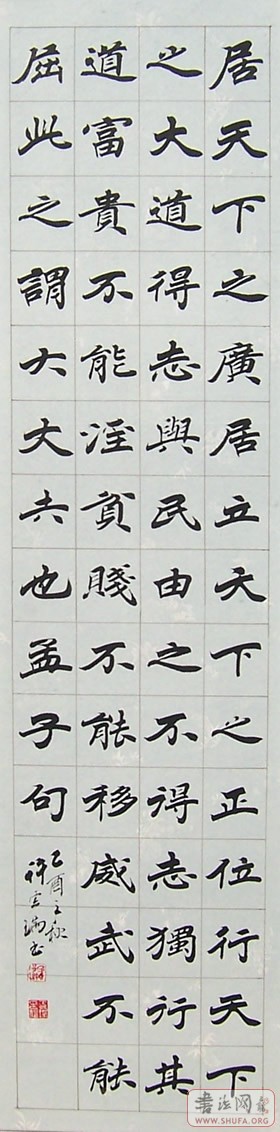 居天下之廣居立天下之正位行天下
之大道得志與民由之不得志獨行其
道富貴不能淫貧賤不能移威武不能
屈此之謂大丈夫也孟子句
乙酉之秋
書法网
WWW.SHUFA.ORG